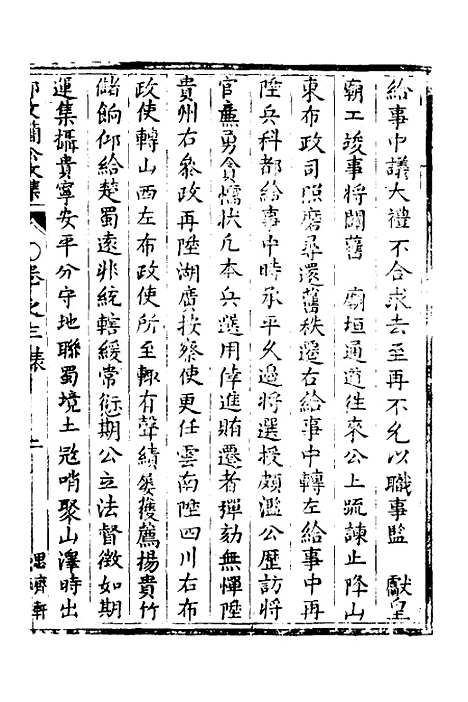 給事中議大禮不合求去至再不允以職事監　獻皇
廟工竣事將闢舊　廟垣通道往來公上疏諫止降山
東布政司照磨尋還舊秩遷右給事中轉左給事中再
陞兵科都給事中時承平久邊將選授頗濫公歷訪將
官亷勇貪懦狀凡本兵選用倖進賄遷者彈劾無憚陞
貴州右參政再陞湖廣按察使更任雲南陞四川右布
政使轉山西左布政使所至輒有聲績屢獲薦揚貴竹
儲餉仰給楚蜀遠非統轄緩常愆期公立法督徵如期
運集攝貴寧安平分守地聯蜀境土寇哨聚山澤時出
文簡公文集　卷之三
濟軒